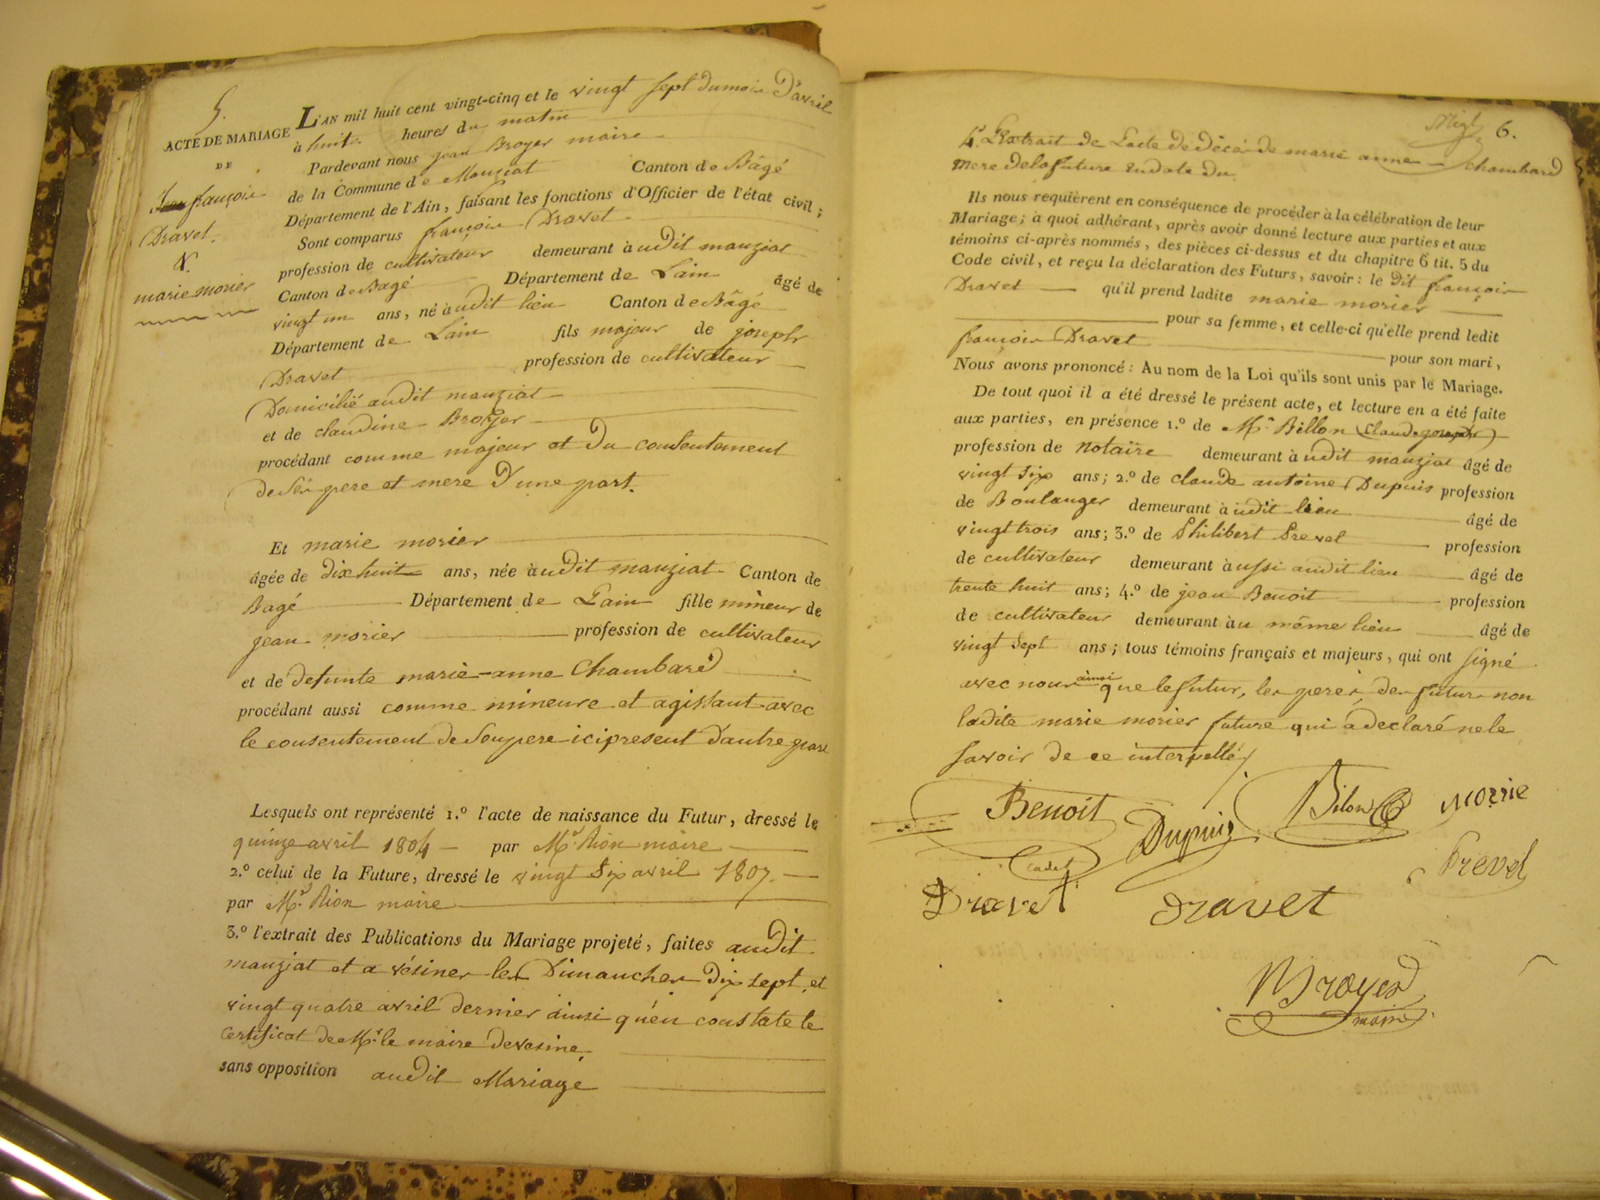 5.
ACTE DE MARIAGE
DE
françois
Dravet.
&
marie morier
L'AN mil huit cent vingt-cinq et le vingt sept du mois D'avril
à huit heures du matin
Pardevant nous jean Broyer maire
de la Commune de Manziat Canton de Bâgé
Département de l'Ain, faisant les fonctions d'Officier de l'état civil;
Sont comparus françois Dravet
profession de cultivateur demeurant à udit manziat
Canton de Bagé Département de Lain âgé de
vingt un ans, né àudit lieu Canton de Bâgé
Département de Lain fils majeur de joseph
Dravet profession de cultivateur
Domicilié audit manziat
et de claudine Broyer
procédant comme majeur et Du consentement
de Ses pere et mere D'une part.
Et marie morier
âgée de dix huit ans, née àudit manziat Canton de
Bagé Département de Lain fille mineur de
jean morier profession de cultivateur
et de defunte marie-anne Chambard
procédant aussi comme mineure et agissant avec
le consentement de Son pere ici present D'autre part
Lesquels ont représenté 1.° l'acte de naissance du Futur, dressé le
quinze avril 1804 par Mr. Rion maire
2.° celui de la Future, dressé le vingt Six avril 1807
par Mr. Rion maire
3.° l'extrait des Publications du Mariage projeté, faites audit
manziat et a vésines les Dimanches Dix sept et
vingt quatre avril dernier ainsi qu'en constate le
Certificat de Mr. le maire de vesine
sans opposition audit Mariage
6.
4.° L'Extrait de L'acte de décés de marie anne Chambard
mere de la future en date du
Ils nous requièrent en conséquence de procéder à la célébration de leur
Mariage; à quoi adhérant, après avoir donné lecture aux parties et aux
témoins ci-après nommés, des pièces ci-dessus et du chapitre 6 tit. 5 du
Code civil, et reçu la déclaration des Futurs, savoir: le dit françois
Dravet qu'il prend ladite marie morier
pour sa femme, et celle-ci qu'elle prend ledit
françois Dravet pour son mari,
Nous avons prononcé: Au nom de la Loi qu'ils sont unis par le Mariage.
De tout quoi il a été dressé le présent acte, et lecture en a été faite
aux parties, en présence 1.° de Mr Billon (Claude joseph)
profession de notaire demeurant à udit manziat âgé de
vingt six ans; 2.° de claude antoine Dupuis profession
de Boulanger demeurant à udit lieu âgé de
vingt trois ans; 3.° de Philibert Prevel profession
de cultivateur demeurant à ussi audit lieu âgé de
trente huit ans; 4.° de jean Benoit profession
de cultivateur demeurant àu même lieu âgé de
vingt Sept ans; tous témoins français et majeurs, qui ont signé
avec nous ainsi que le futur, les peres des futurs non
ladite marie morier future qui a déclaré ne le
savoir de ce interpellé
Benoit Dupuis Bilon Morrie
Cadet
Prevel
Dravet Dravet
Broyer
maire